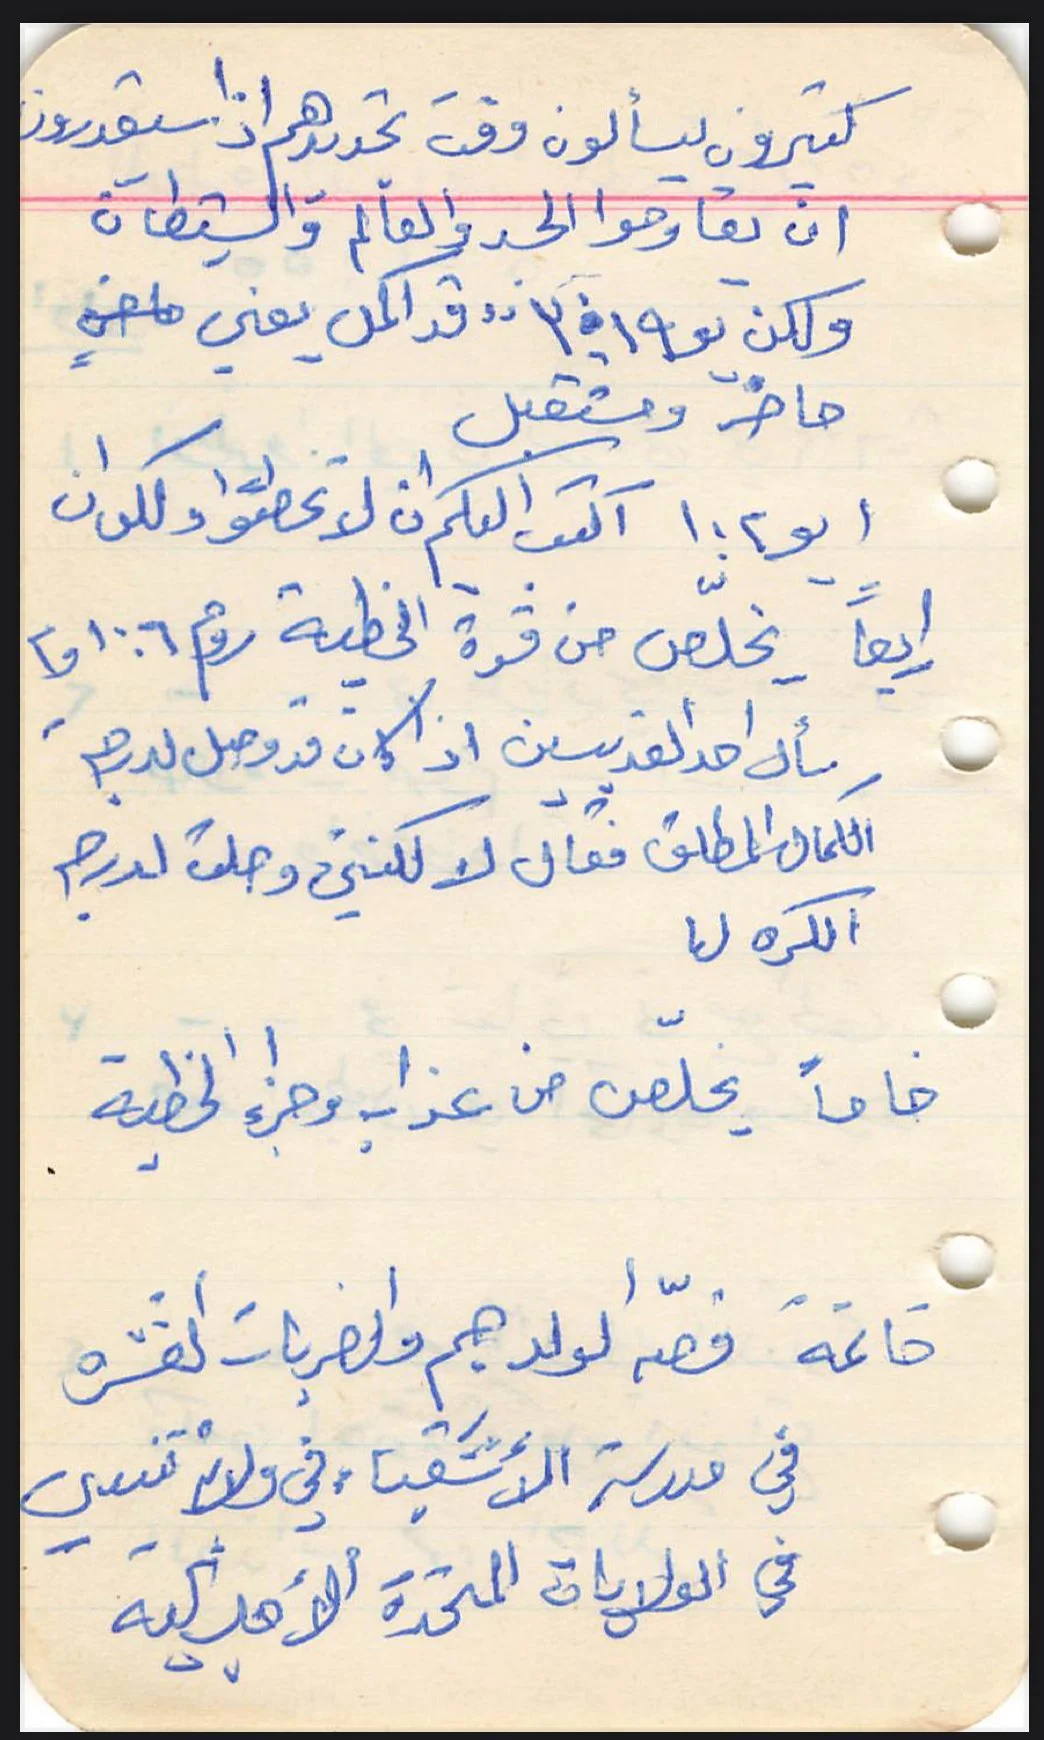 كثيرون يسألون وقت تجديدهم اذا سيقدرون
ان يقاوموا الجسد والعالم والشيطان
ولكن يو ١٩: ٣٠ "قد اكمل يعني ماضي
حاضر ومستقبل
١ يو ٢: ١ اكتب اليكم ان لا تخطئوا ولكن ان
رابعاً يخلّص من قوة الخطية روم ٦: ١٠ لما
سأل احد القديسين اذا كان قد وصل لدرجة
الكمال المطلق فقال لا لكنني وصلت لدرجة
الكره لها
خامساً يخلّص من عذاب وجزاء الخطية
خاتمة قصة الولد جيم والضربات العشرة
في مدرسة الأشقياء في ولاية تنسي
في الولايات المتحدة الأميركية